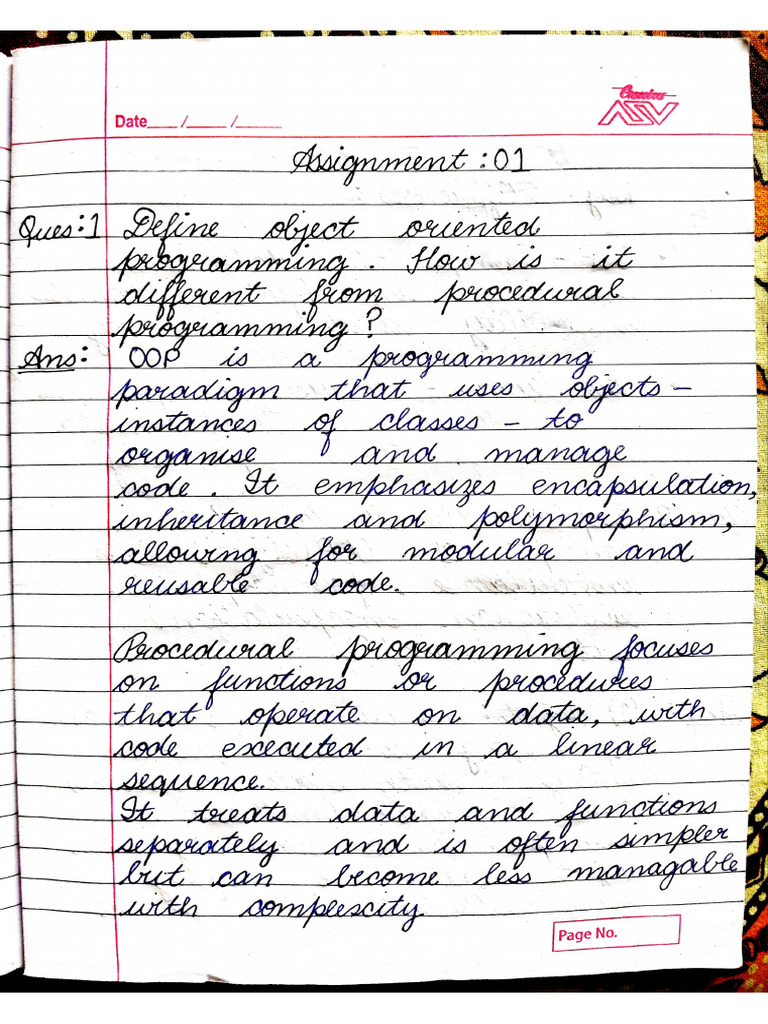 Date___/___/___
Classmate
Assignment : 01
Ques:1 Define object oriented
programming. How is it
different from procedural
programming?
Ans: OOP is a programming
paradigm that uses objects –
instances of classes – to
organise and manage
code. It emphasizes encapsulation,
inheritance and polymorphism,
allowing for modular and
reusable code.
Procedural programming focuses
on functions or procedures
that operate on data, with
code executed in a linear
sequence.
It treats data and functions
separately and is often simpler
but can become less managable
with complexcity
Page No.